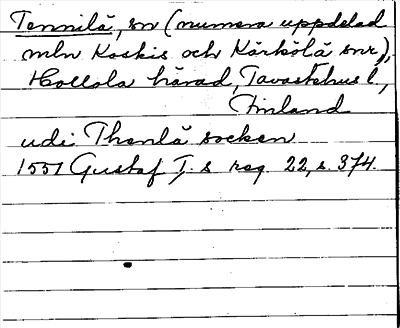 Tennilä, sn (numera uppdelad
mln Koskis och Kärkölä snr),
Hollola härad, Tavastehus l.,
Finland
udi Thenlä socken
1551 Gustaf I. s reg. 22, s. 374.